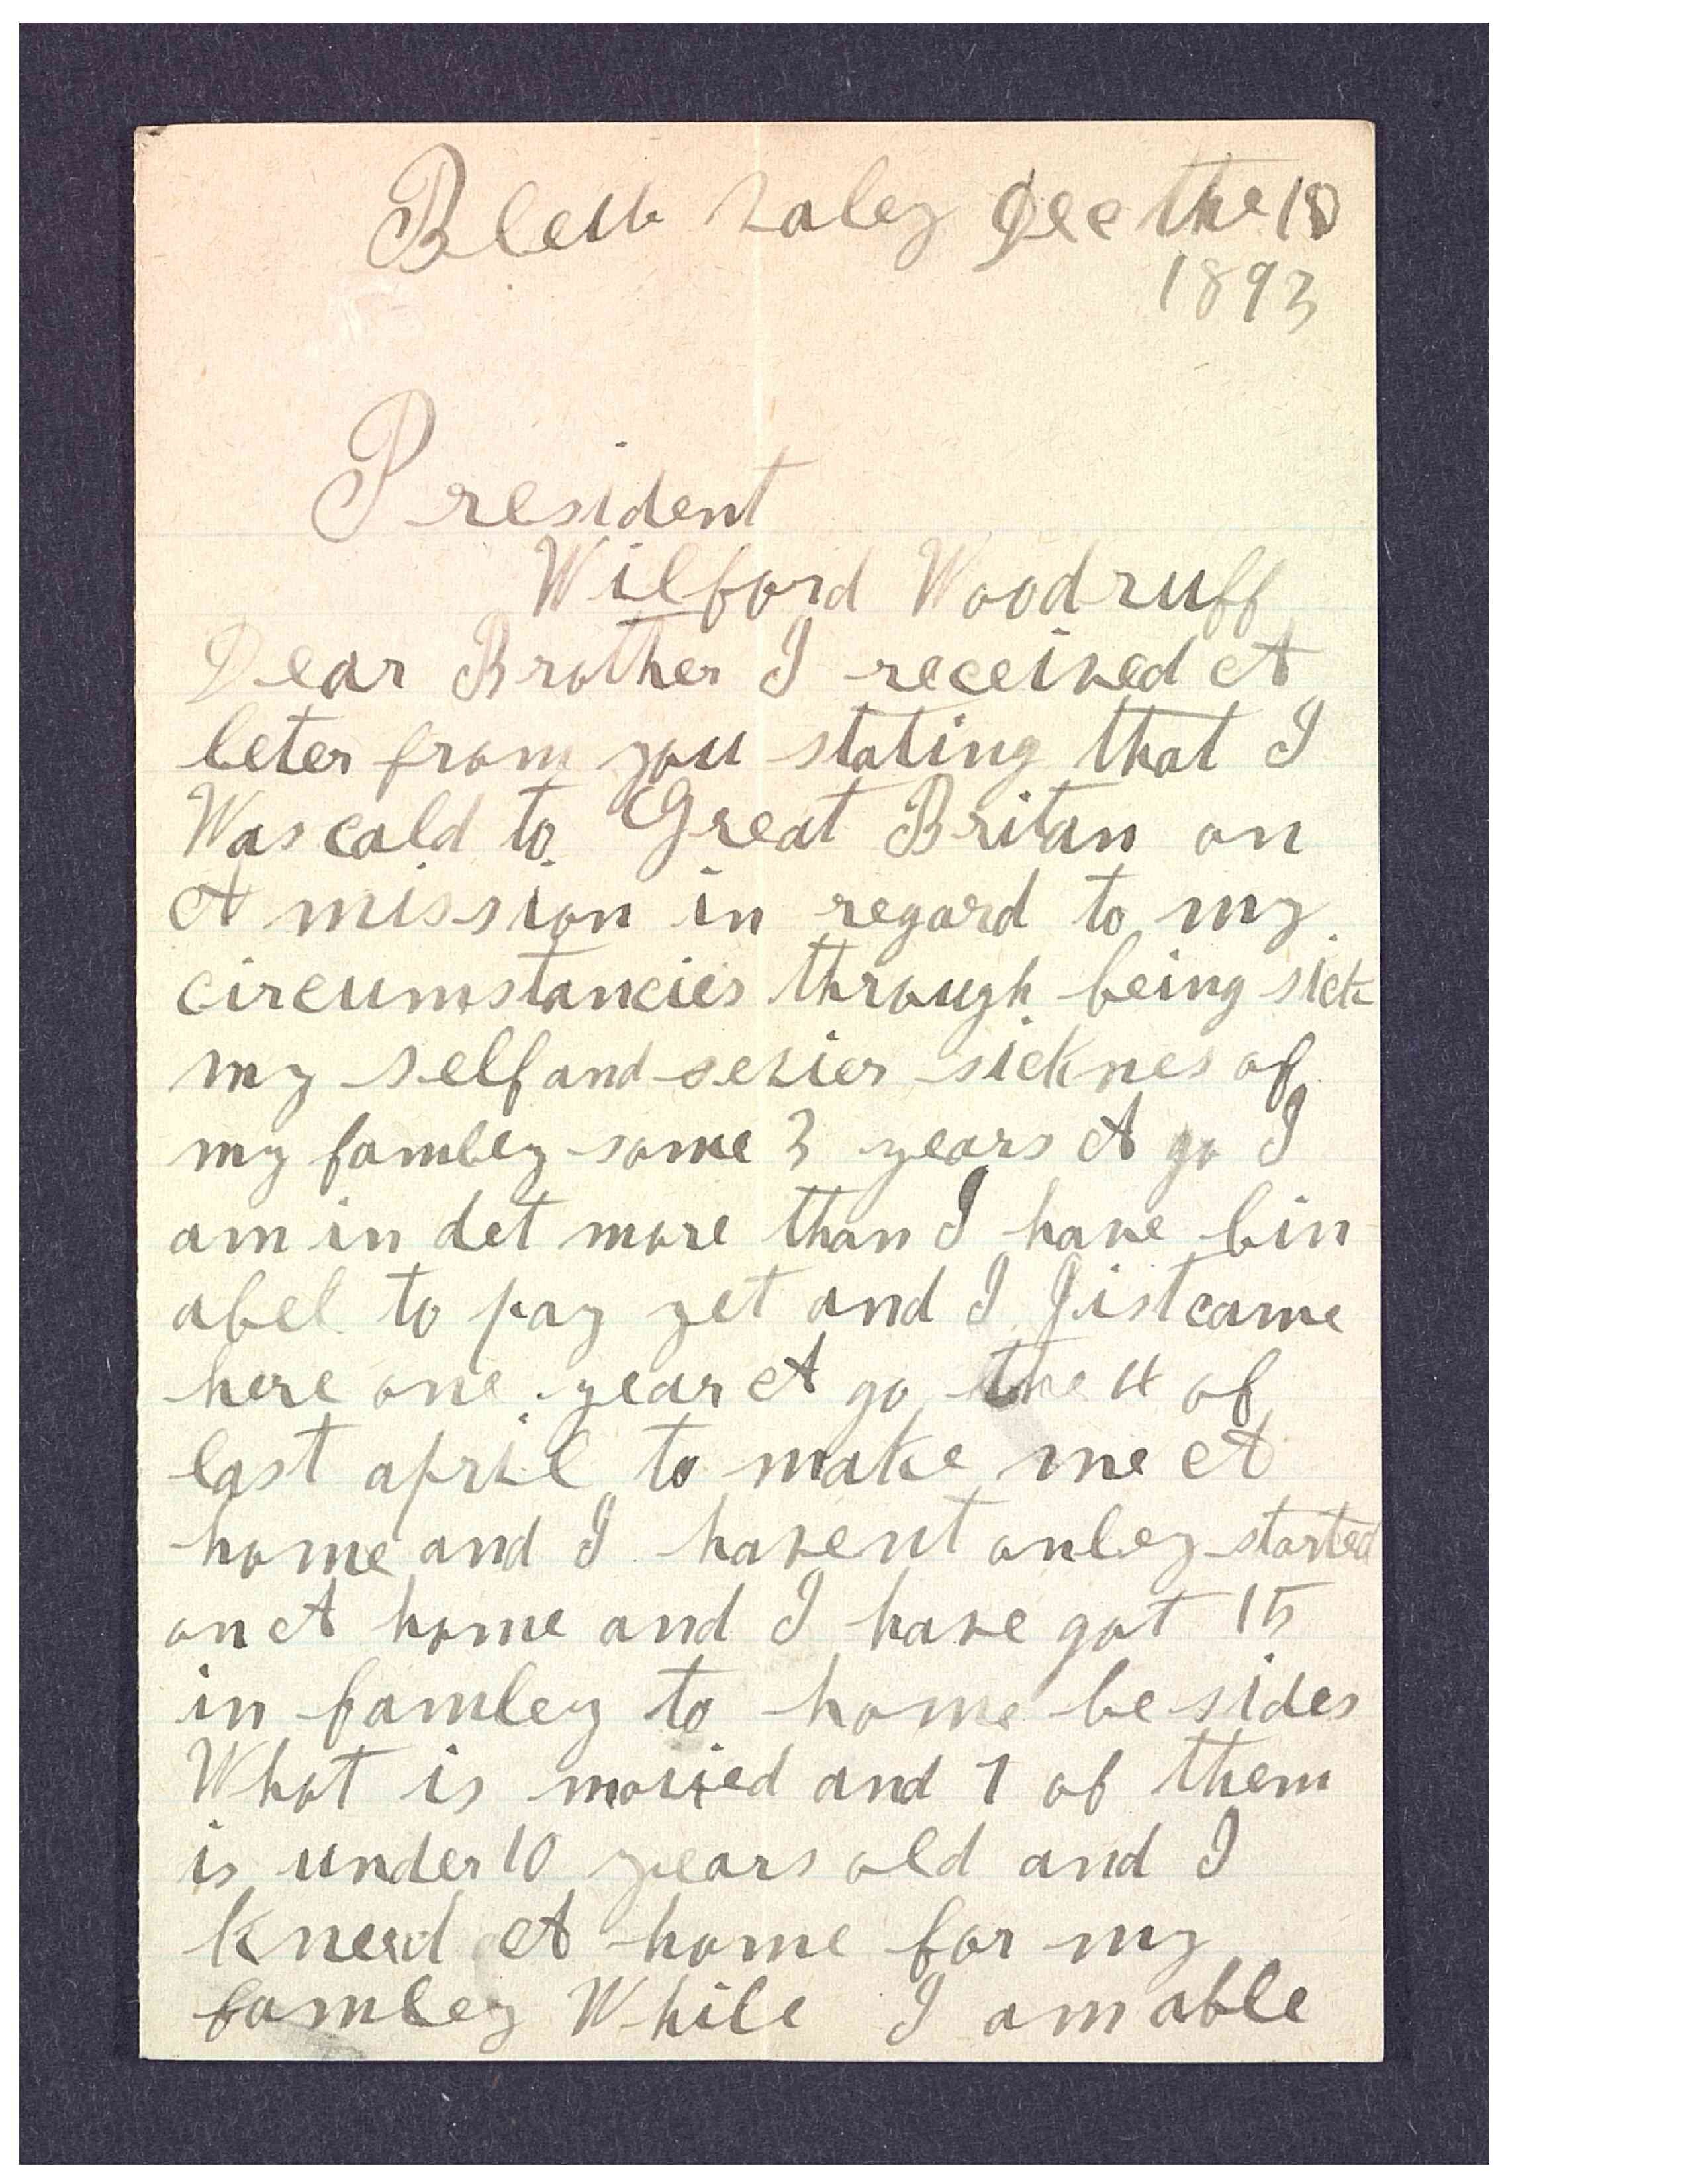 valey Dec the 18
1893
President
Wilford Woodruff
Dear Brother I received A
leter from you stating that I
Was cald to Great Britan on
A mission in regard to my
circumstancies through being sick
my self and sevier sicknes of
my famley some 3 years A go I
am in det more than I have bin
abel to pay yet and I Jist came
here one year A go the 4 of
last april to make me A
home and I havent onley started
on A home and I have got 15
in famley to home be sides
What is maried and 7 of them
is under 10 years old and I
kneed A home for my
famley While I am able